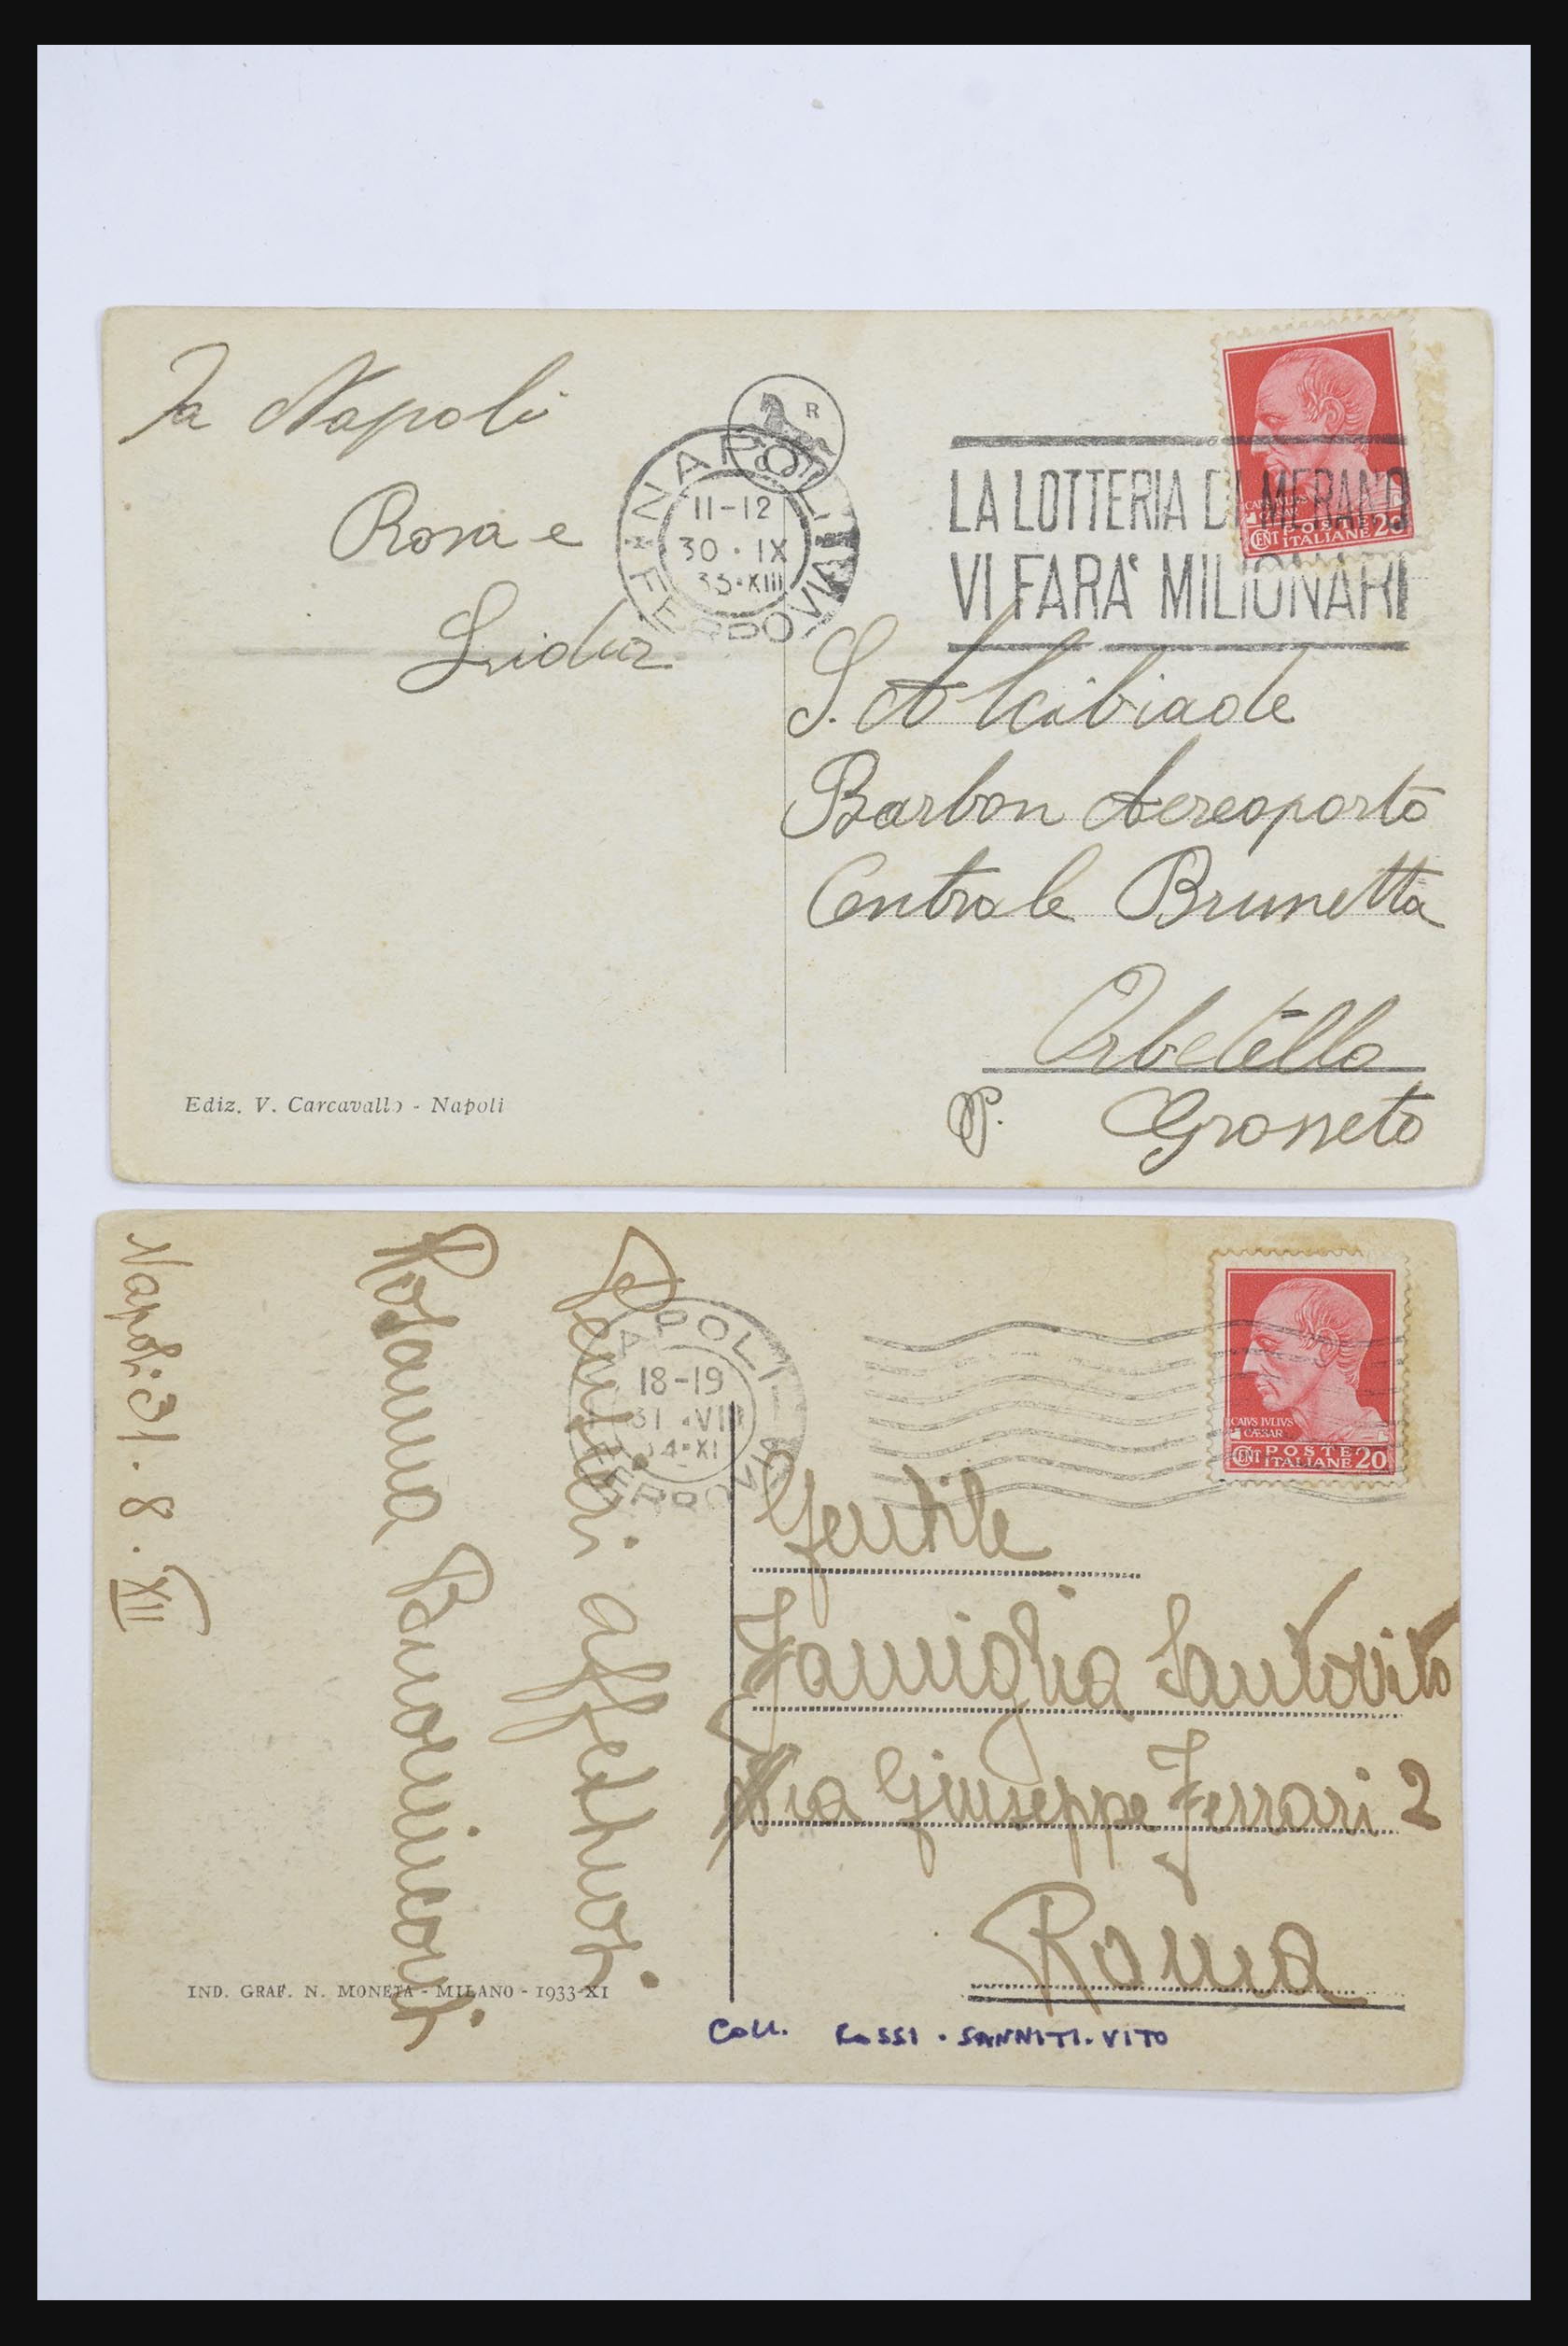 Da Napoli
Rosa e
Lidia
NAPOLI
FERROVIA
11-12
30 · IX
35·XIII
R
LA LOTTERIA DI MERANO
VI FARA' MILIONARI
CAIVS IVLIVS
CENT POSTE ITALIANE 20
S. Alcibiade
Barbon Aereoporto
Centrale Brunetta
Orbetello
P. Grosseto
Ediz. V. Carcavallo - Napoli
Napoli 31 . 8 . XII
Pensieri affettuosi
NAPOLI
FERROVIA
18-19
31 · VIII
34·XI
CAIVS IVLIVS
CÆSAR
CENT POSTE ITALIANE 20
Gentile
Famiglia Santovito
Via Giuseppe Ferrari 2
Roma
IND. GRAF. N. MONETA - MILANO - 1933-XI
COLL. ROSSI · SANNITI · VITO